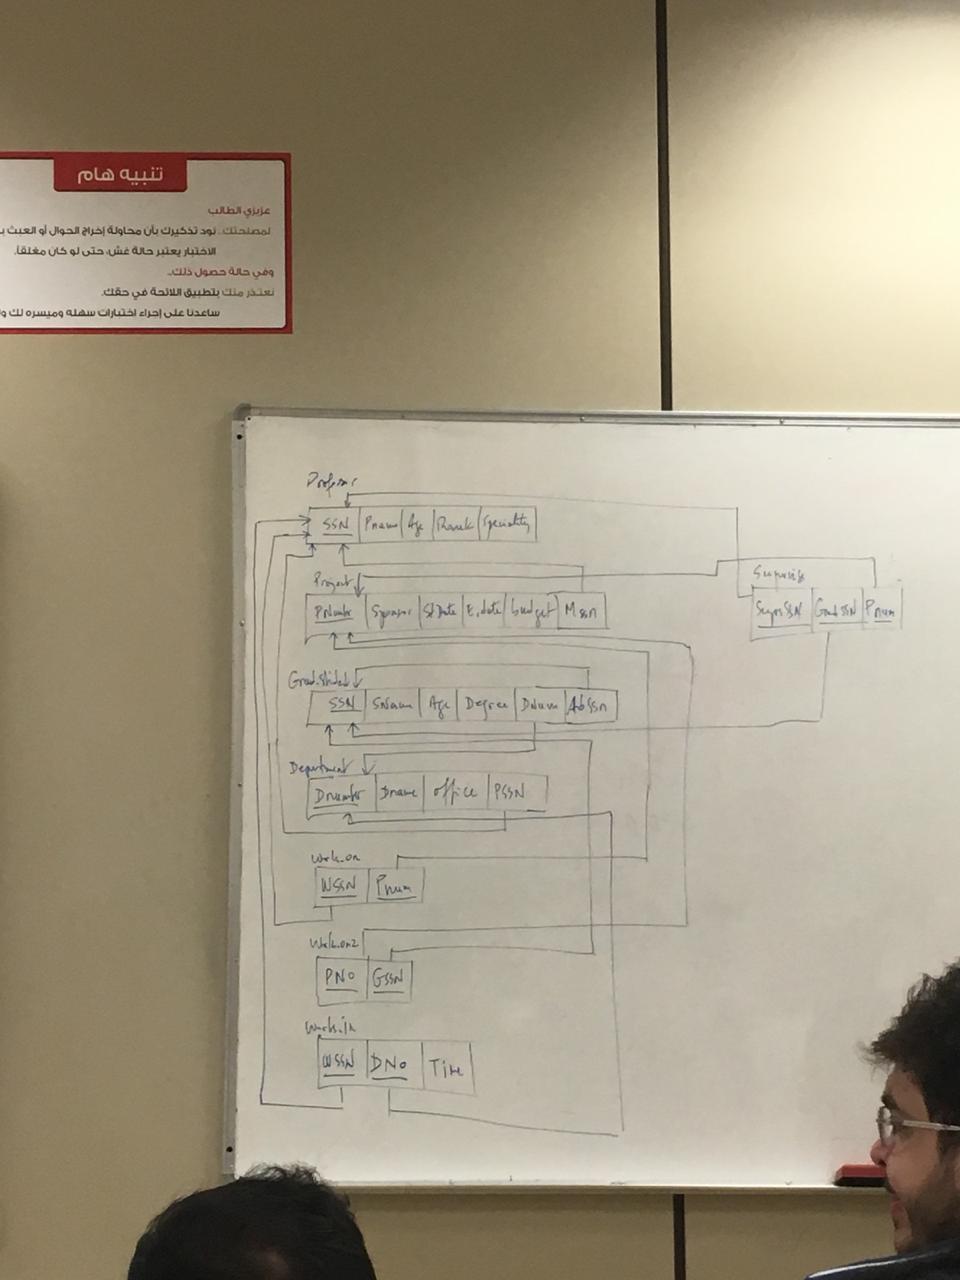 تنبيه هام
عزيزي الطالب
لمصلحتك.. نود تذكيرك بأن محاولة إخراج الجوال أو العبث
الاختبار يعتبر حالة غش، حتى لو كان مغلقاً.
وفي حالة حصول ذلك..
نعتذر منك بتطبيق اللائحة في حقك.
ساعدنا على إجراء اختبارات سهله وميسره لك
Professor
SSN Pname Age Rank Speciality
Project
PNumber Sponsor St.Date E.date budget Mssn
Supervise
SuperSSN GradSSN Pnum
Grad.Student
SSN SName Age Degree DNum AdSSn
Department
Dnumber Dname office PSSN
Work.on
WSSN Pnum
Work.on2
PNo GSSN
Works.in
WSSN DNo Time